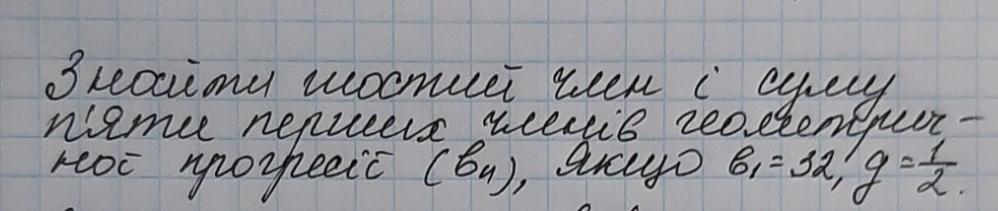 Знайти шостий член і суму
п'яти перших членів геометрич-
ної прогресії (вₙ), якщо в₁=32, g=1/2.